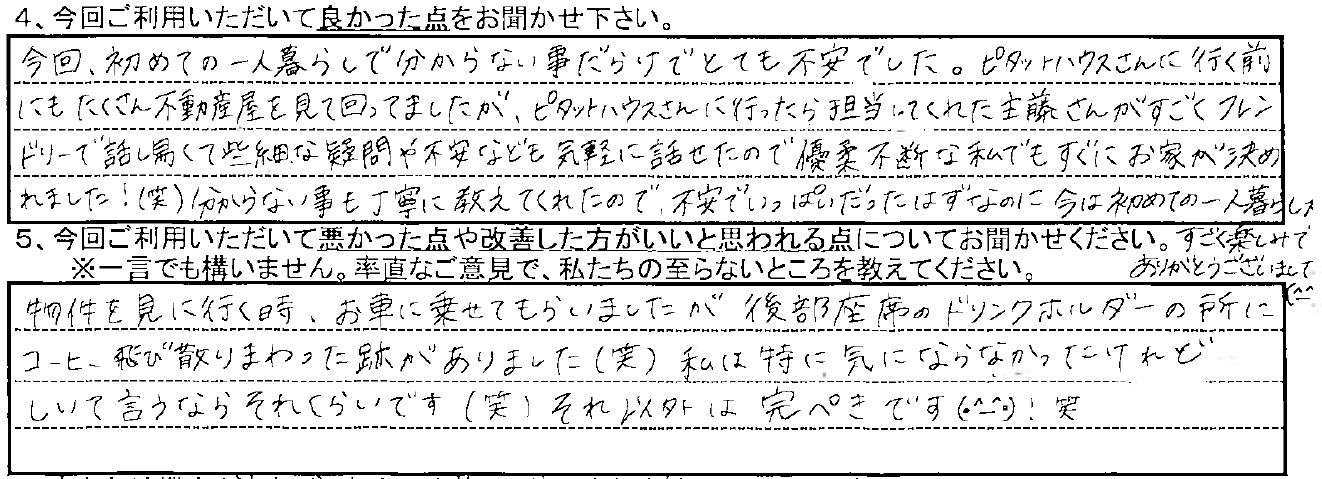 4、今回ご利用いただいて良かった点をお聞かせ下さい。
今回、初めての一人暮らしで分からない事だらけでとても不安でした。ピタットハウスさんに行く前
にもたくさん不動産屋を見て回ってましたが、ピタットハウスさんに行ったら担当してくれた主藤さんがすごくフレン
ドリーで話し易くて些細な疑問や不安なども気軽に話せたので優柔不断な私でもすぐにお家が決め
れました!(笑)分からない事も丁寧に教えてくれたので、不安でいっぱいだったはずなのに今は初めての一人暮らしが
すごく楽しみで
ありがとうございました
(^^
5、今回ご利用いただいて悪かった点や改善した方がいいと思われる点についてお聞かせください。
※一言でも構いません。率直なご意見で、私たちの至らないところを教えてください。
物件を見に行く時、お車に乗せてもらいましたが後部座席のドリンクホルダーの所に
コーヒー飛び散りまわった跡がありました(笑)私は特に気にならなかったけれど
しいて言うならそれくらいです(笑)それ以外は完ぺきです(•^_^•)!笑